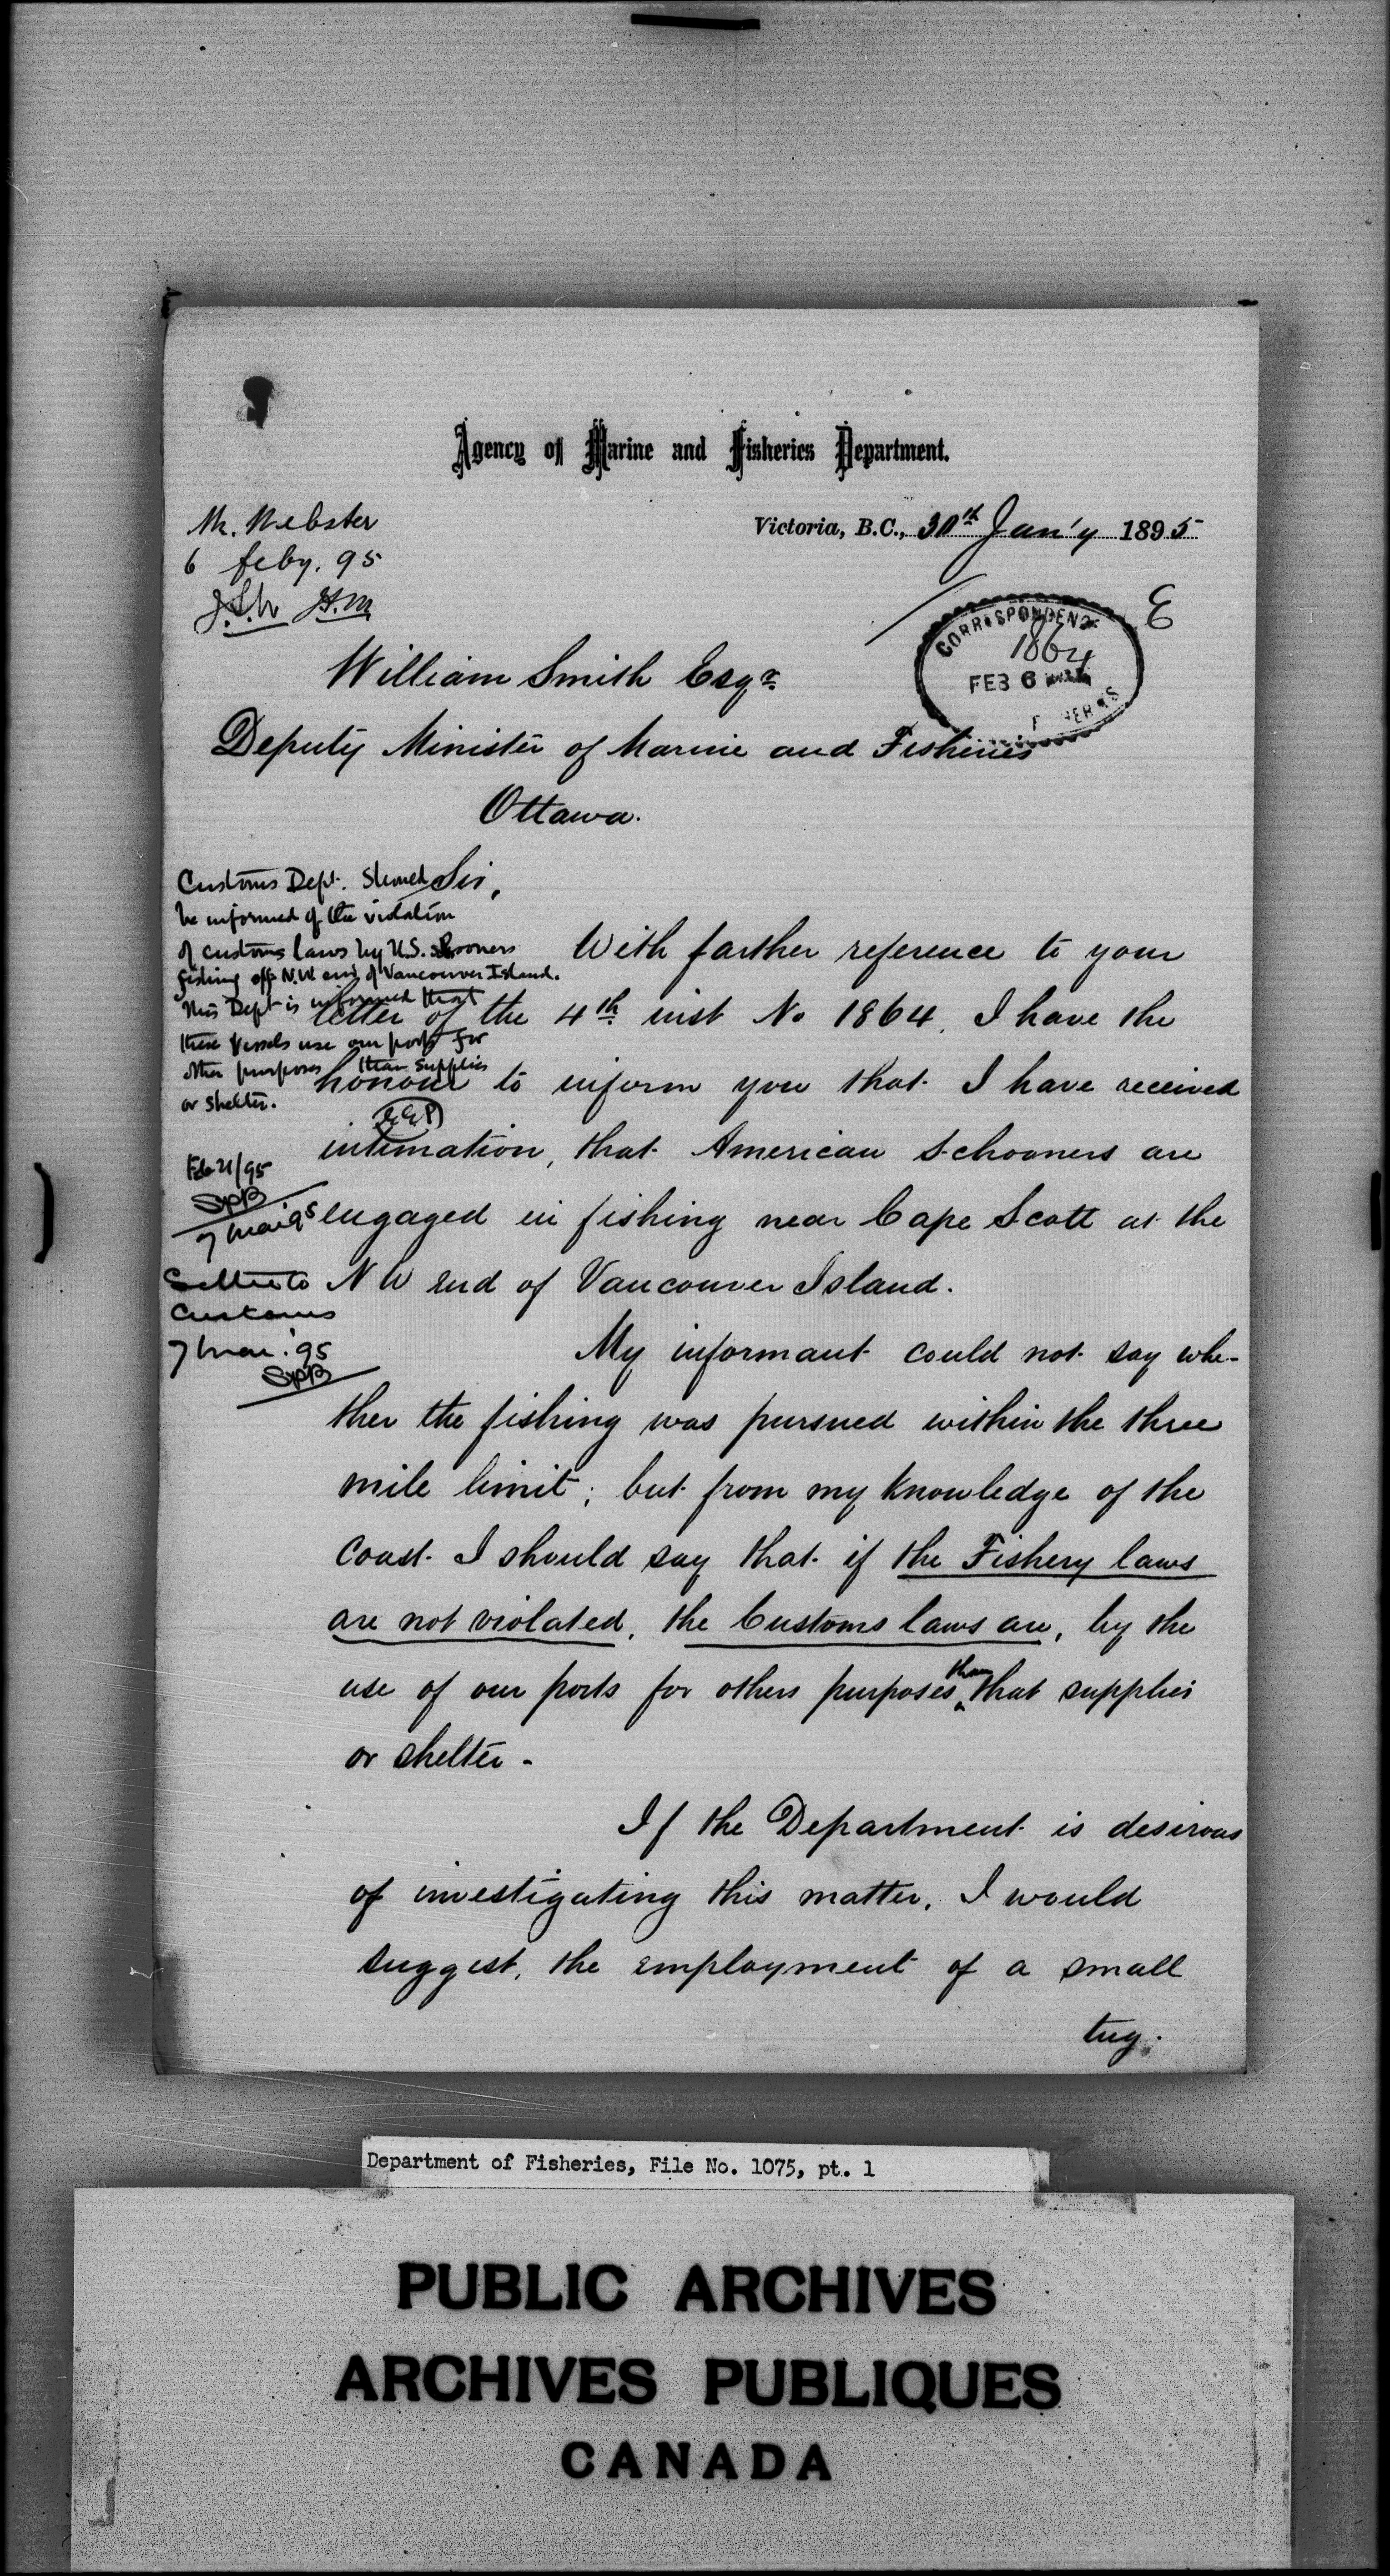 Agency of Marine and Fisheries Department.
Mr. Webster
6 feby. 95
Victoria, B.C., 30th Jan'y 1895
E
CORRESPONDENCE
1864
FEB 6
William Smith Esqr
Deputy Minister of Marine and Fisheries
Ottawa.
Sir,
Customs Dept. Should
be informed of the violation
of customs laws by U.S. schooners
fishing off N.W. end of Vancouver Island.
This Dept is informed that
these vessels use our ports for
other purposes than supplies
or shelter.
Feb 21/95
SPB
7 mar 95
Letter to
Customs
7 mar. '95
SPB
With farther reference to your
letter of the 4th inst No 1864, I have the
honour to inform you that I have received
intimation, that American schooners are
engaged in fishing near Cape Scott at the
N W end of Vancouver Island.
My informant could not say whe-
ther the fishing was pursued within the three
mile limit; but from my knowledge of the
coast I should say that if the Fishery laws
are not violated, the Customs laws are, by the
use of our ports for others purposes than that supplies
or shelter -
If the Department is desirous
of investigating this matter, I would
suggest, the employment of a small
tug.
Department of Fisheries, File No. 1075, pt. 1
PUBLIC ARCHIVES
ARCHIVES PUBLIQUES
CANADA